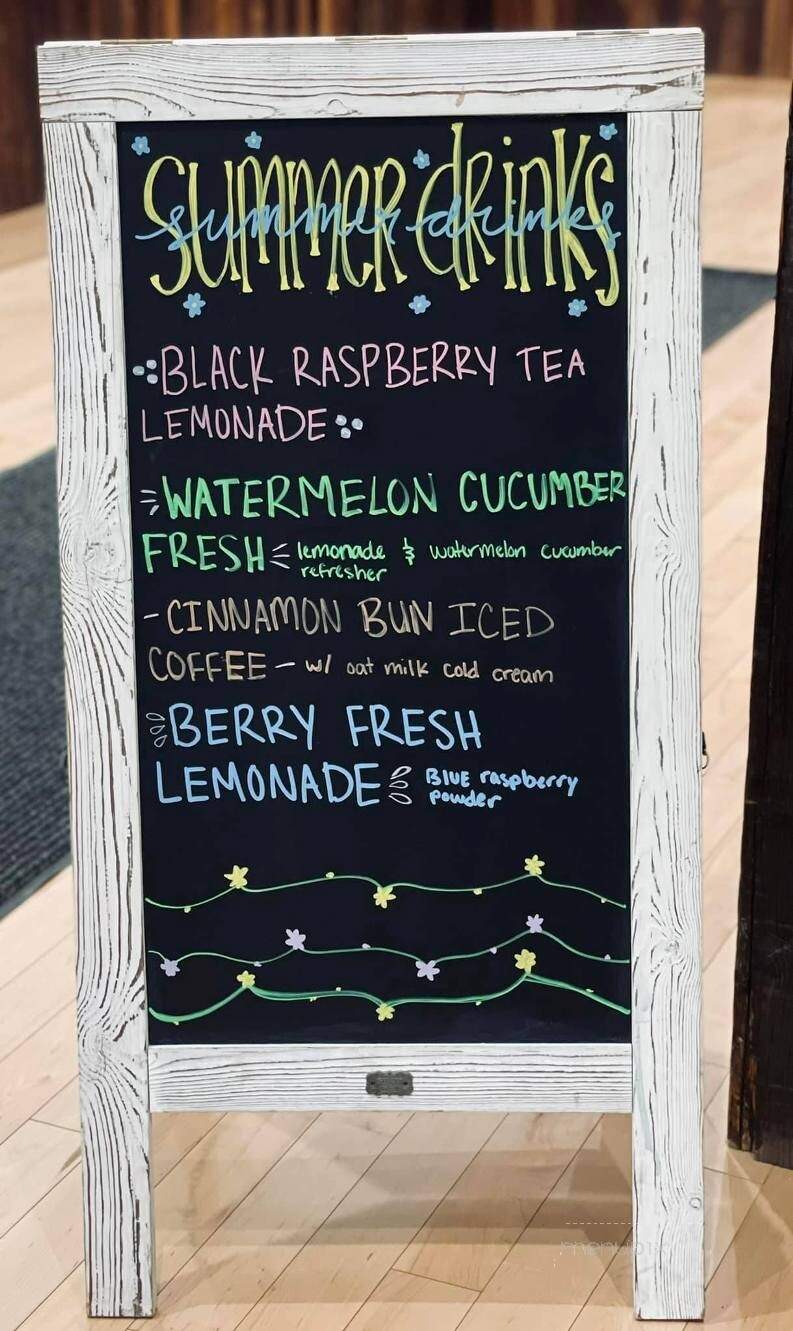 SUMMER dRiNKS
summer drinks
BLACK RASPBERRY TEA
LEMONADE
WATERMELON CUCUMBER
FRESH lemonade & watermelon cucumber
refresher
-CINNAMON BUN ICED
COFFEE - w/ oat milk cold cream
BERRY FRESH
LEMONADE BlUE raspberry
powder